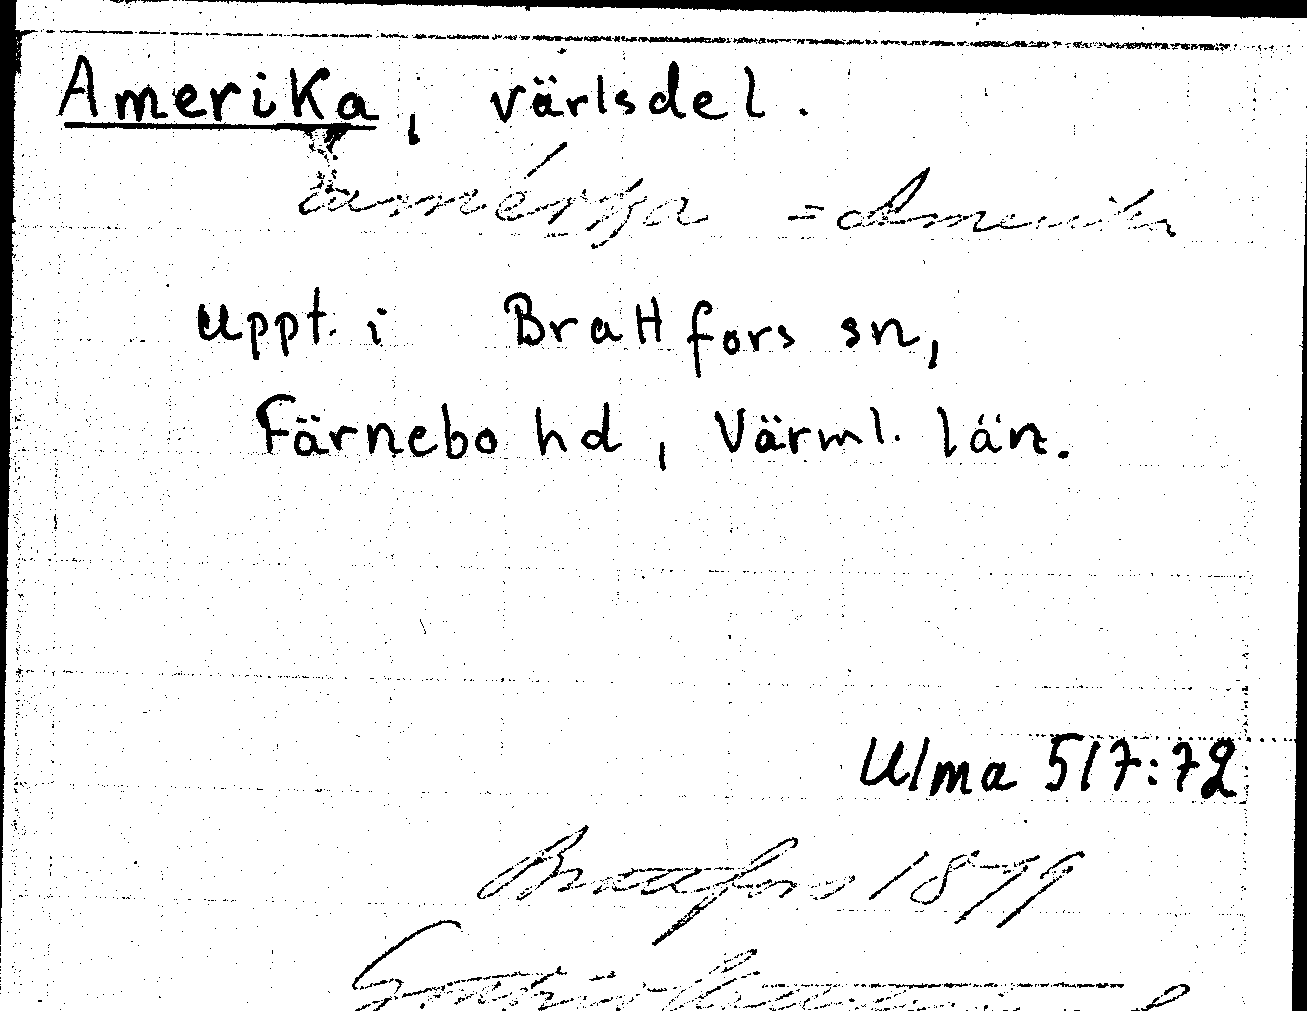 Amerika, värlsdel.
amérka = Amerika
uppt. i Brattfors sn,
Färnebo hd, Värml. län.
Ulma 517:72
Brattfors 1879